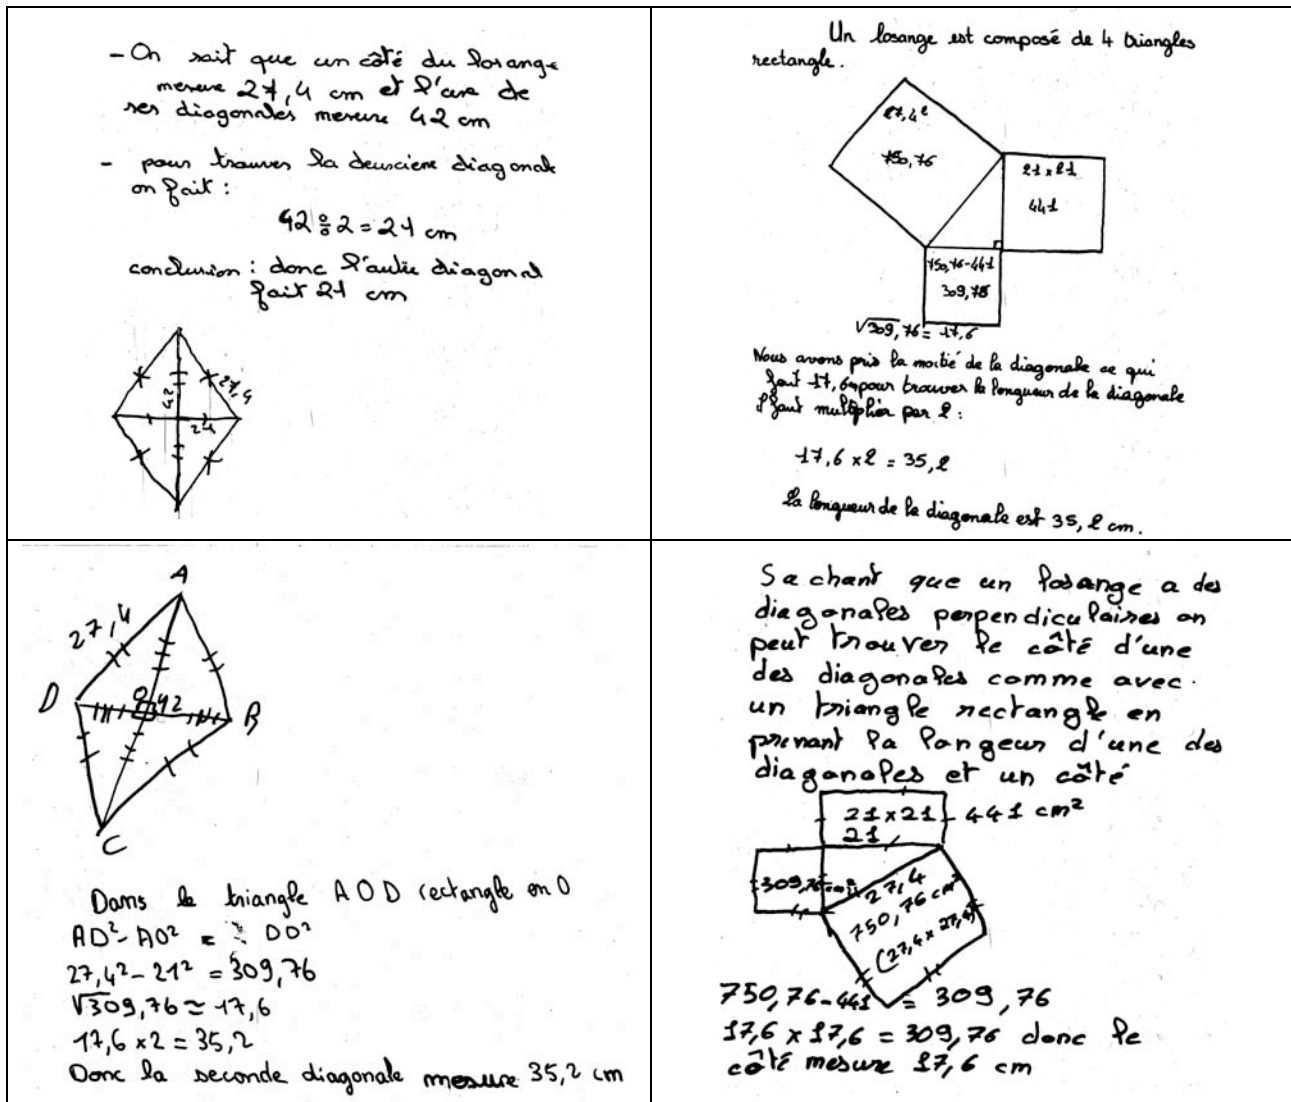 - On sait que un côté du losange
mesure 27,4 cm et l'une de
ses diagonales mesure 42 cm
- pour trouver la deuxcième diagonale
on fait :
42 ÷ 2 = 21 cm
conclusion : donc l'autre diagonal
fait 21 cm
27,4
42
21
Un losange est composé de 4 triangles
rectangle.
27,4²
750,76
21 x 21
441
750,76-441
309,76
√309,76 = 17,6
Nous avons pris la moitié de la diagonale ce qui
fait 17,6 pour trouver la longueur de la diagonale
il faut multiplier par 2 :
17,6 x 2 = 35,2
La longueur de la diagonale est 35,2 cm.
A
27,4
D
O
42
B
C
Dans le triangle AOD rectangle en O
AD² - AO² = DO²
27,4² - 21² = 309,76
√309,76 ≃ 17,6
17,6 x 2 = 35,2
Donc la seconde diagonale mesure 35,2 cm
Sachant que un losange a des
diagonales perpendiculaires on
peut trouver le côté d'une
des diagonales comme avec
un triangle rectangle en
prenant la longeur d'une des
diagonales et un côté
21 x 21
441 cm²
21
309,76 cm²
27,4
750,76 cm²
(27,4 x 27,4)
750,76 - 441 = 309,76
17,6 x 17,6 = 309,76 donc le
côté mesure 17,6 cm